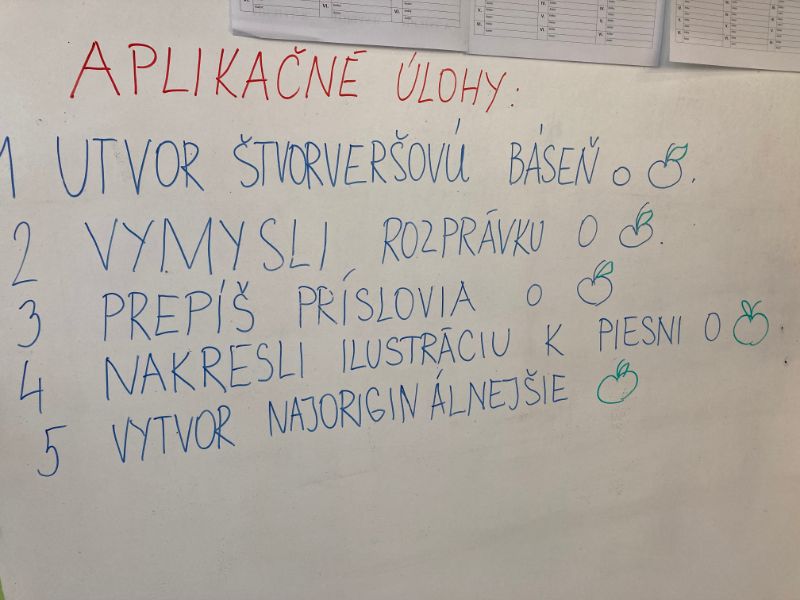 APLIKAČNÉ ÚLOHY:
1 UTVOR ŠTVORVERŠOVÚ BÁSEŇ O .
2 VYMYSLI ROZPRÁVKU O .
3 PREPÍŠ PRÍSLOVIA O
4 NAKRESLI ILUSTRÁCIU K PIESNI O
5 VYTVOR NAJORIGINÁLNEJŠIE